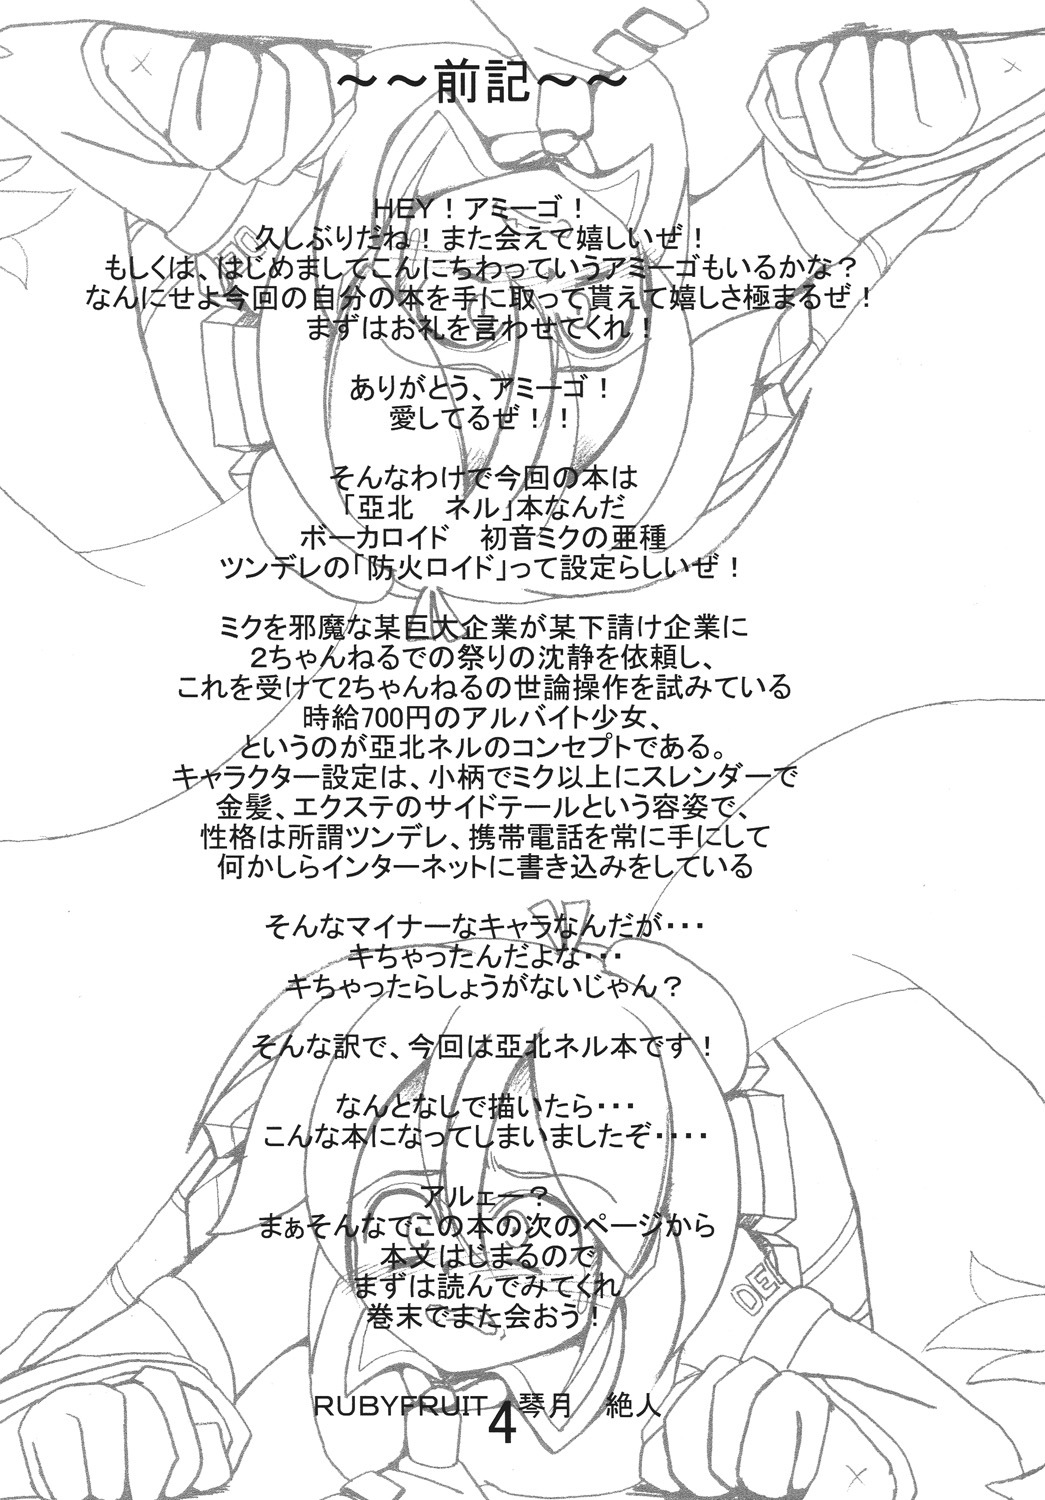 ～～前記～～
HEY！アミーゴ！
久しぶりだね！また会えて嬉しいぜ！
もしくは、はじめましてこんにちわっていうアミーゴもいるかな？
なんにせよ今回の自分の本を手に取って貰えて嬉しさ極まるぜ！
まずはお礼を言わせてくれ！
ありがとう、アミーゴ！
愛してるぜ！！
そんなわけで今回の本は
「亞北　ネル」本なんだ
ボーカロイド　初音ミクの亜種
ツンデレの「防火ロイド」って設定らしいぜ！
ミクを邪魔な某巨大企業が某下請け企業に
２ちゃんねるでの祭りの沈静を依頼し、
これを受けて2ちゃんねるの世論操作を試みている
時給700円のアルバイト少女、
というのが亞北ネルのコンセプトである。
キャラクター設定は、小柄でミク以上にスレンダーで
金髪、エクステのサイドテールという容姿で、
性格は所謂ツンデレ、携帯電話を常に手にして
何かしらインターネットに書き込みをしている
そんなマイナーなキャラなんだが・・・
キちゃったんだよな・・・
キちゃったらしょうがないじゃん？
そんな訳で、今回は亞北ネル本です！
なんとなしで描いたら・・・
こんな本になってしまいましたぞ・・・・
アルェー？
まぁそんなでこの本の次のページから
本文はじまるので
まずは読んでみてくれ
巻末でまた会おう！
RUBYFRUIT　琴月　絶人
4